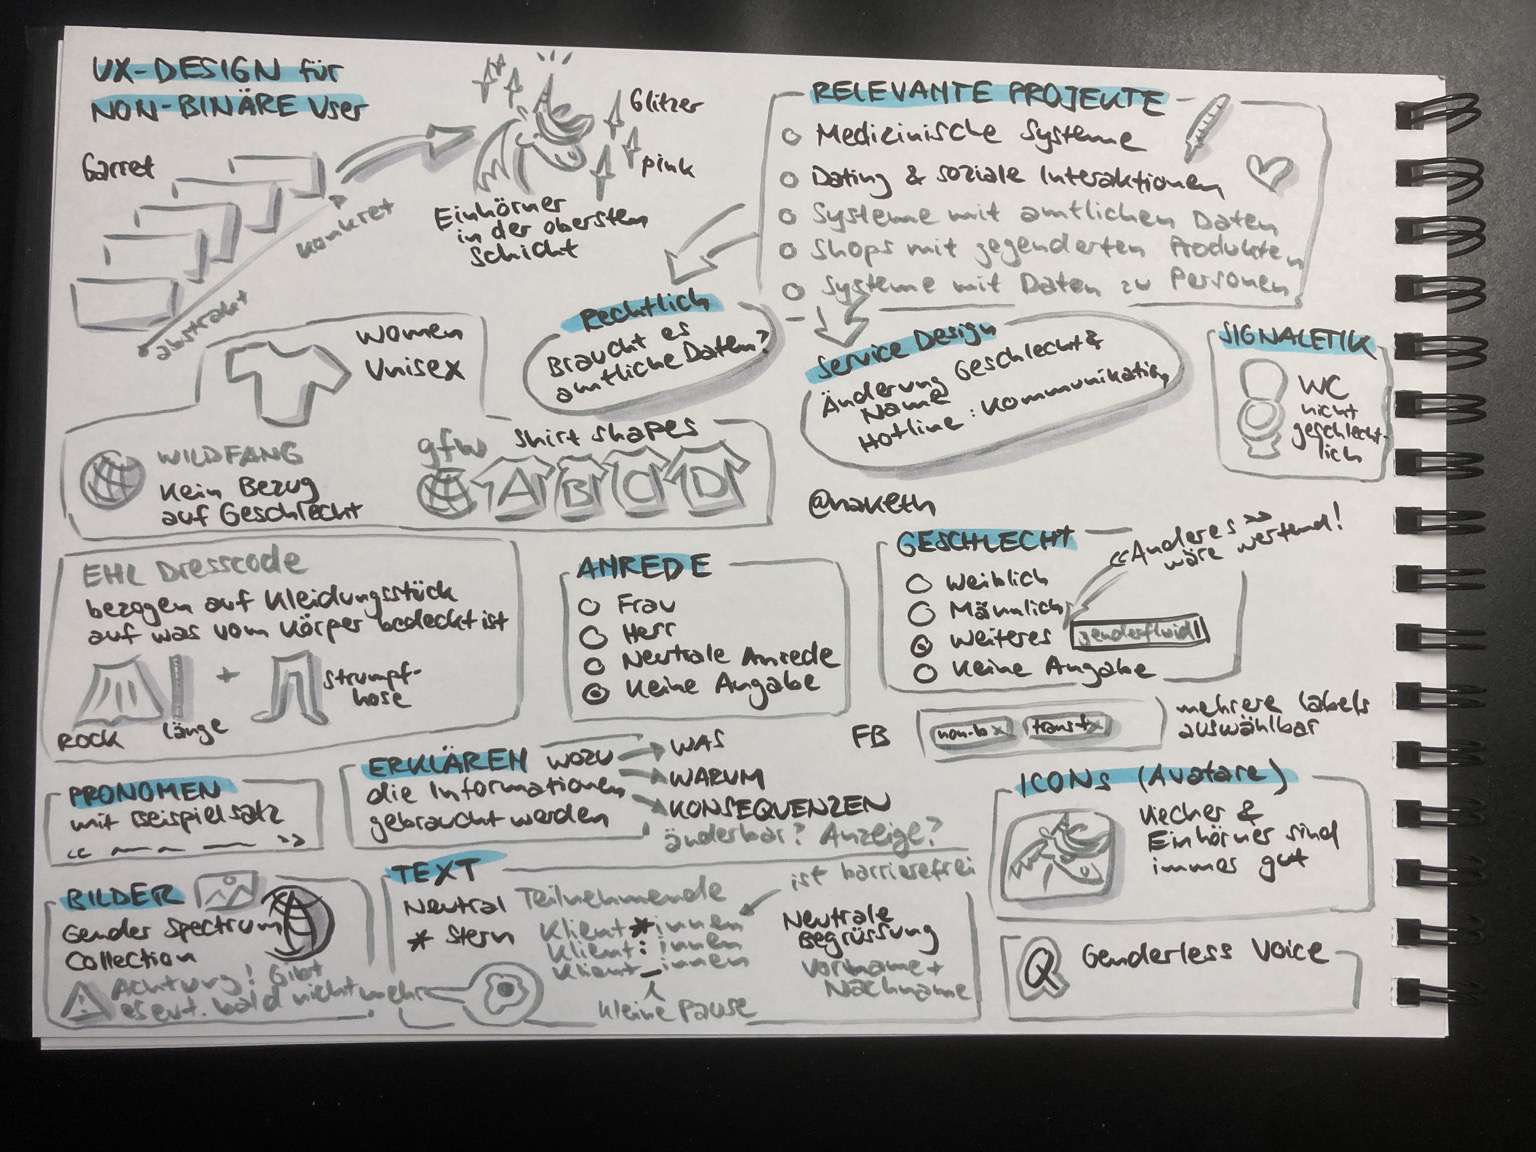 UX-DESIGN für
NON-BINÄRE User
Garret
abstrakt
konkret
Glitzer
pink
Einhörner
in der obersten
Schicht
RELEVANTE PROJEKTE
Medizinische Systeme
Dating & soziale Interaktionen
Systeme mit amtlichen Daten
Shops mit gegenderten Produkten
Systeme mit Daten zu Personen
Rechtlich
Braucht es
amtliche Daten?
Service Design
Änderung Geschlecht &
Name
Hotline: Kommunikation
SIGNALETIK
WC
nicht
geschlecht-
lich
women
Unisex
WILDFANG
Kein Bezug
auf Geschlecht
gfw
Shirt shapes
A B C D
@naketh
EHL Dresscode
bezogen auf Kleidungsstück
auf was vom Körper bedeckt ist
Rock
länge
+
Strumpf-
hose
ANREDE
Frau
Herr
Neutrale Anrede
Keine Angabe
GESCHLECHT
Weiblich
Männlich
Weiteres
genderfluid
Keine Angabe
«Anderes»
wäre wertend!
FB
non-b x
trans x
mehrere Labels
auswählbar
PRONOMEN
mit Beispielsatz
« »
ERKLÄREN wozu
die Informationen
gebraucht werden
WAS
WARUM
KONSEQUENZEN
änderbar? Anzeige?
ICONS (Avatare)
Viecher &
Einhörner sind
immer gut
BILDER
Gender Spectrum
Collection
Achtung! Gibt
es evt. bald nicht mehr
TEXT
Neutral Teilnehmende
* Stern Klient*innen
Klient:innen
Klient_innen
kleine Pause
ist barrierefrei
Neutrale
Begrüssung
Vorname +
Nachname
Q Genderless Voice